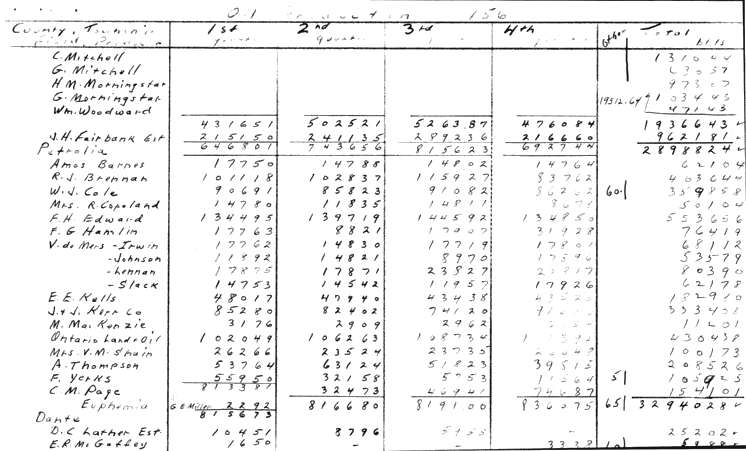 Oil Production 156
County, Township 1st 2nd 3rd 4th Other Total
Field, Producer quarter quarter bbls
C. Mitchell 131044
G. Mitchell 63057
H M. Morningstar 97307
G. Morningstar 19512.64 103443
Wm. Woodward 47143
431651 502521 526387 476084 1936643
J. H. Fairbank Est 215150 241135 289236 216660 962181
Petrolia 646801 743656 815623 692744 2898824
Amos Barnes 17750 14788 14802 14764 62104
R. J. Brennan 101118 102837 115927 83762 403644
W. J. Cole 90691 85823 91082 86262 60 359858
Mrs. R. Copeland 14780 11835 14811 8678 50104
F. H. Edward 134495 139719 144592 134850 553656
F. G Hamlin 17763 8821 17907 31928 76419
V. de Mers - Irwin 17762 14830 17719 17801 68112
- Johnson 11892 14821 8970 17896 53579
- Lennan 17875 17871 23827 20817 80390
- Slack 14753 14542 11957 17926 62178
E. E. Kells 48017 47940 43438 43520 182910
J. & J. Kerr Co 85280 82402 74120 333408
M. MacKenzie 3176 2909 2962 11201
Ontario Land & Oil 102049 106263 108734 430438
Mrs. V. M. Strain 26266 23524 23735 100173
A. Thompson 53764 63124 51823 39815 208526
F. Yerks 55950 32158 5753 11564 51 105925
813381
C M. Page 32473 46941 74687 154101
Euphemia G E Miller 2292 816680 819100 836075 65 3294028
815673
Dante
D. C Lather Est 10451 8796 5955 - 25202
E. R. McGaffey 1650 - - 3338 10 5988